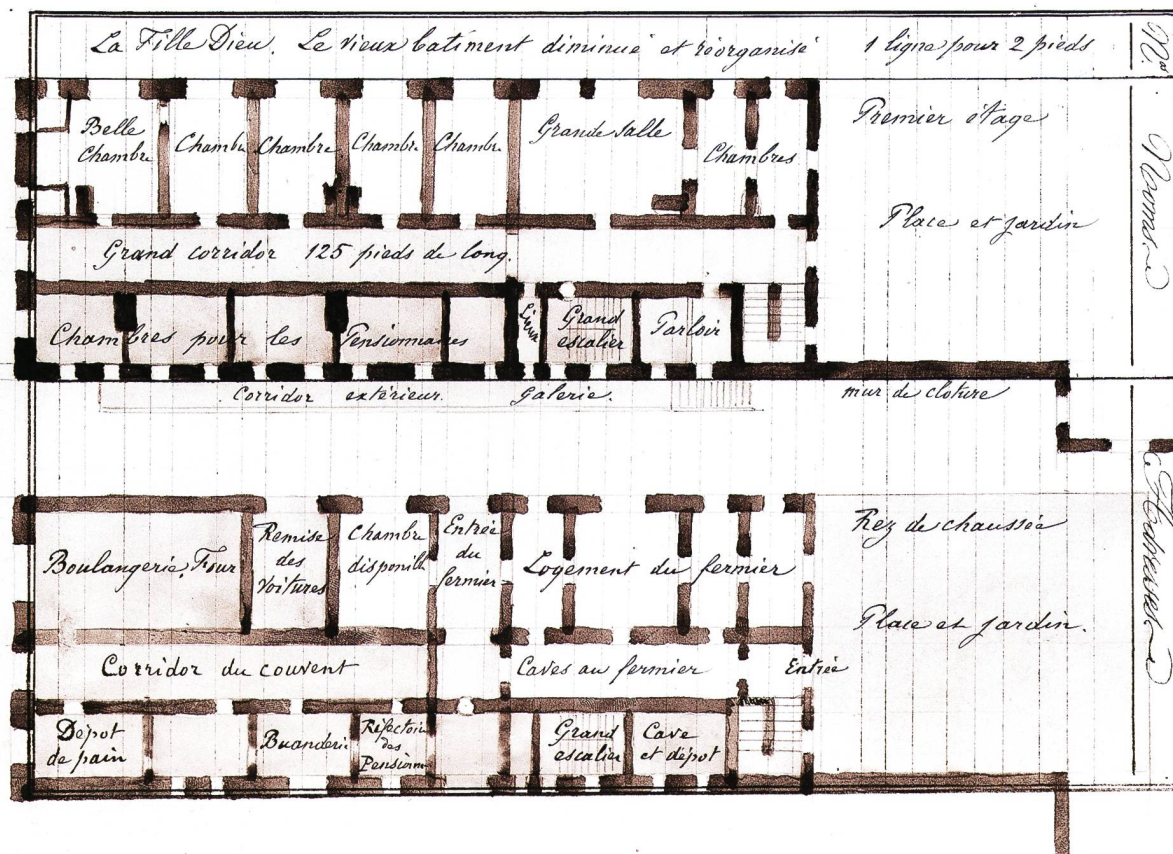 La Fille Dieu. Le vieux batiment diminué et réorganisé 1 ligne pour 2 pieds
Nos
Noms.
Adresses
Premier étage
Belle
Chambre
Chambre
Chambre
Chambre
Chambre
Grande Salle
Chambres
Place et jardin
Grand corridor 125 pieds de long.
Chambres pour les Pensionnaires
Lieux
Grand
escalier
Parloir
Corridor extérieur. Galerie.
mur de cloture
Rez de chaussée
Boulangerie, Four
Remise
des
Voitures
Chambre
disponible
Entrée
du
fermier
Logement du fermier
Place et jardin.
Corridor du couvent
Caves au fermier
Entrée
Dépot
de pain
Buanderie
Réfectoire
des
Pensionn
Grand
escalier
Cave
et dépot